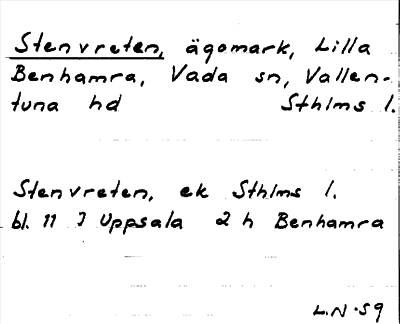 Stenvreten, ägomark, Lilla
Benhamra, Vada sn, Vallen-
tuna hd Sthlms l.
Stenvreten, ek Sthlms l.
bl. 11 J Uppsala 2 h Benhamra
L.N. 59